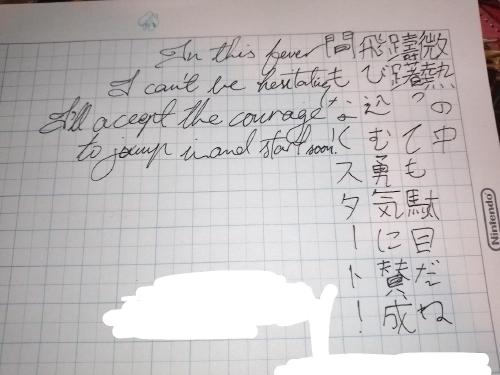 微熱の中
躊躇っても駄目だね
飛び込む勇気に賛成
間もなくスタート!
In this fever
I can't be hesitating
I'll accept the courage
to jump in and start soon.
Nintendo